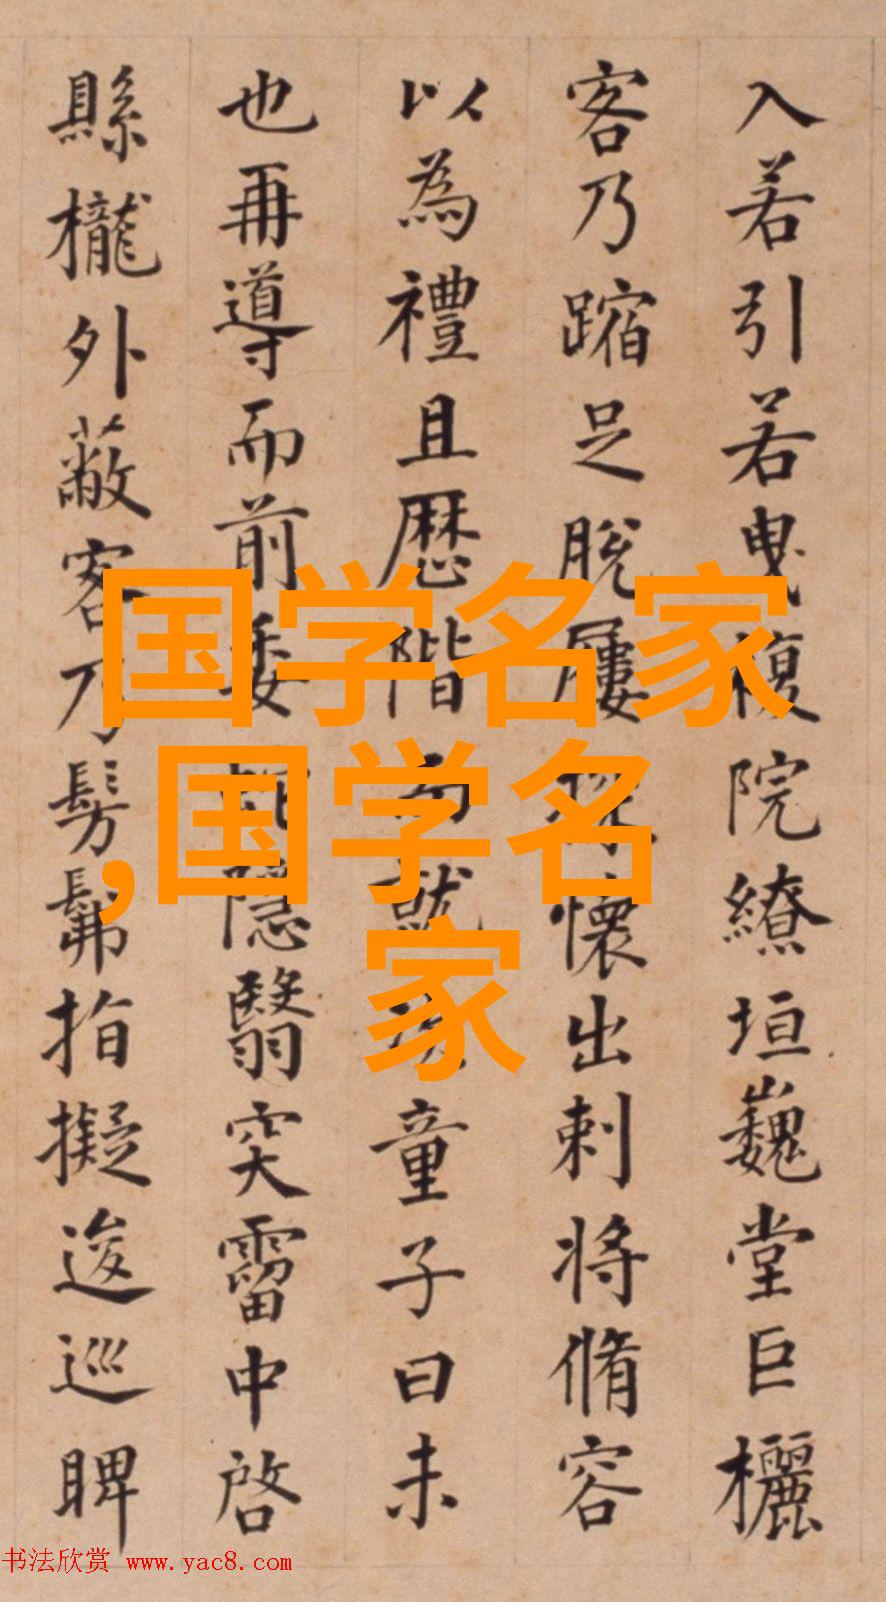 入若引若曳複院繚垣巍堂巨欐
客乃蹜足脫屨懷出刺將脩容
以為禮且歷階而就童子曰未
也再導而前委隱翳突霤中啓
縣櫳外蔽客乃髣髴指擬逡巡睥
国学名家
,国学名
家
书法欣赏 www.yac8.com